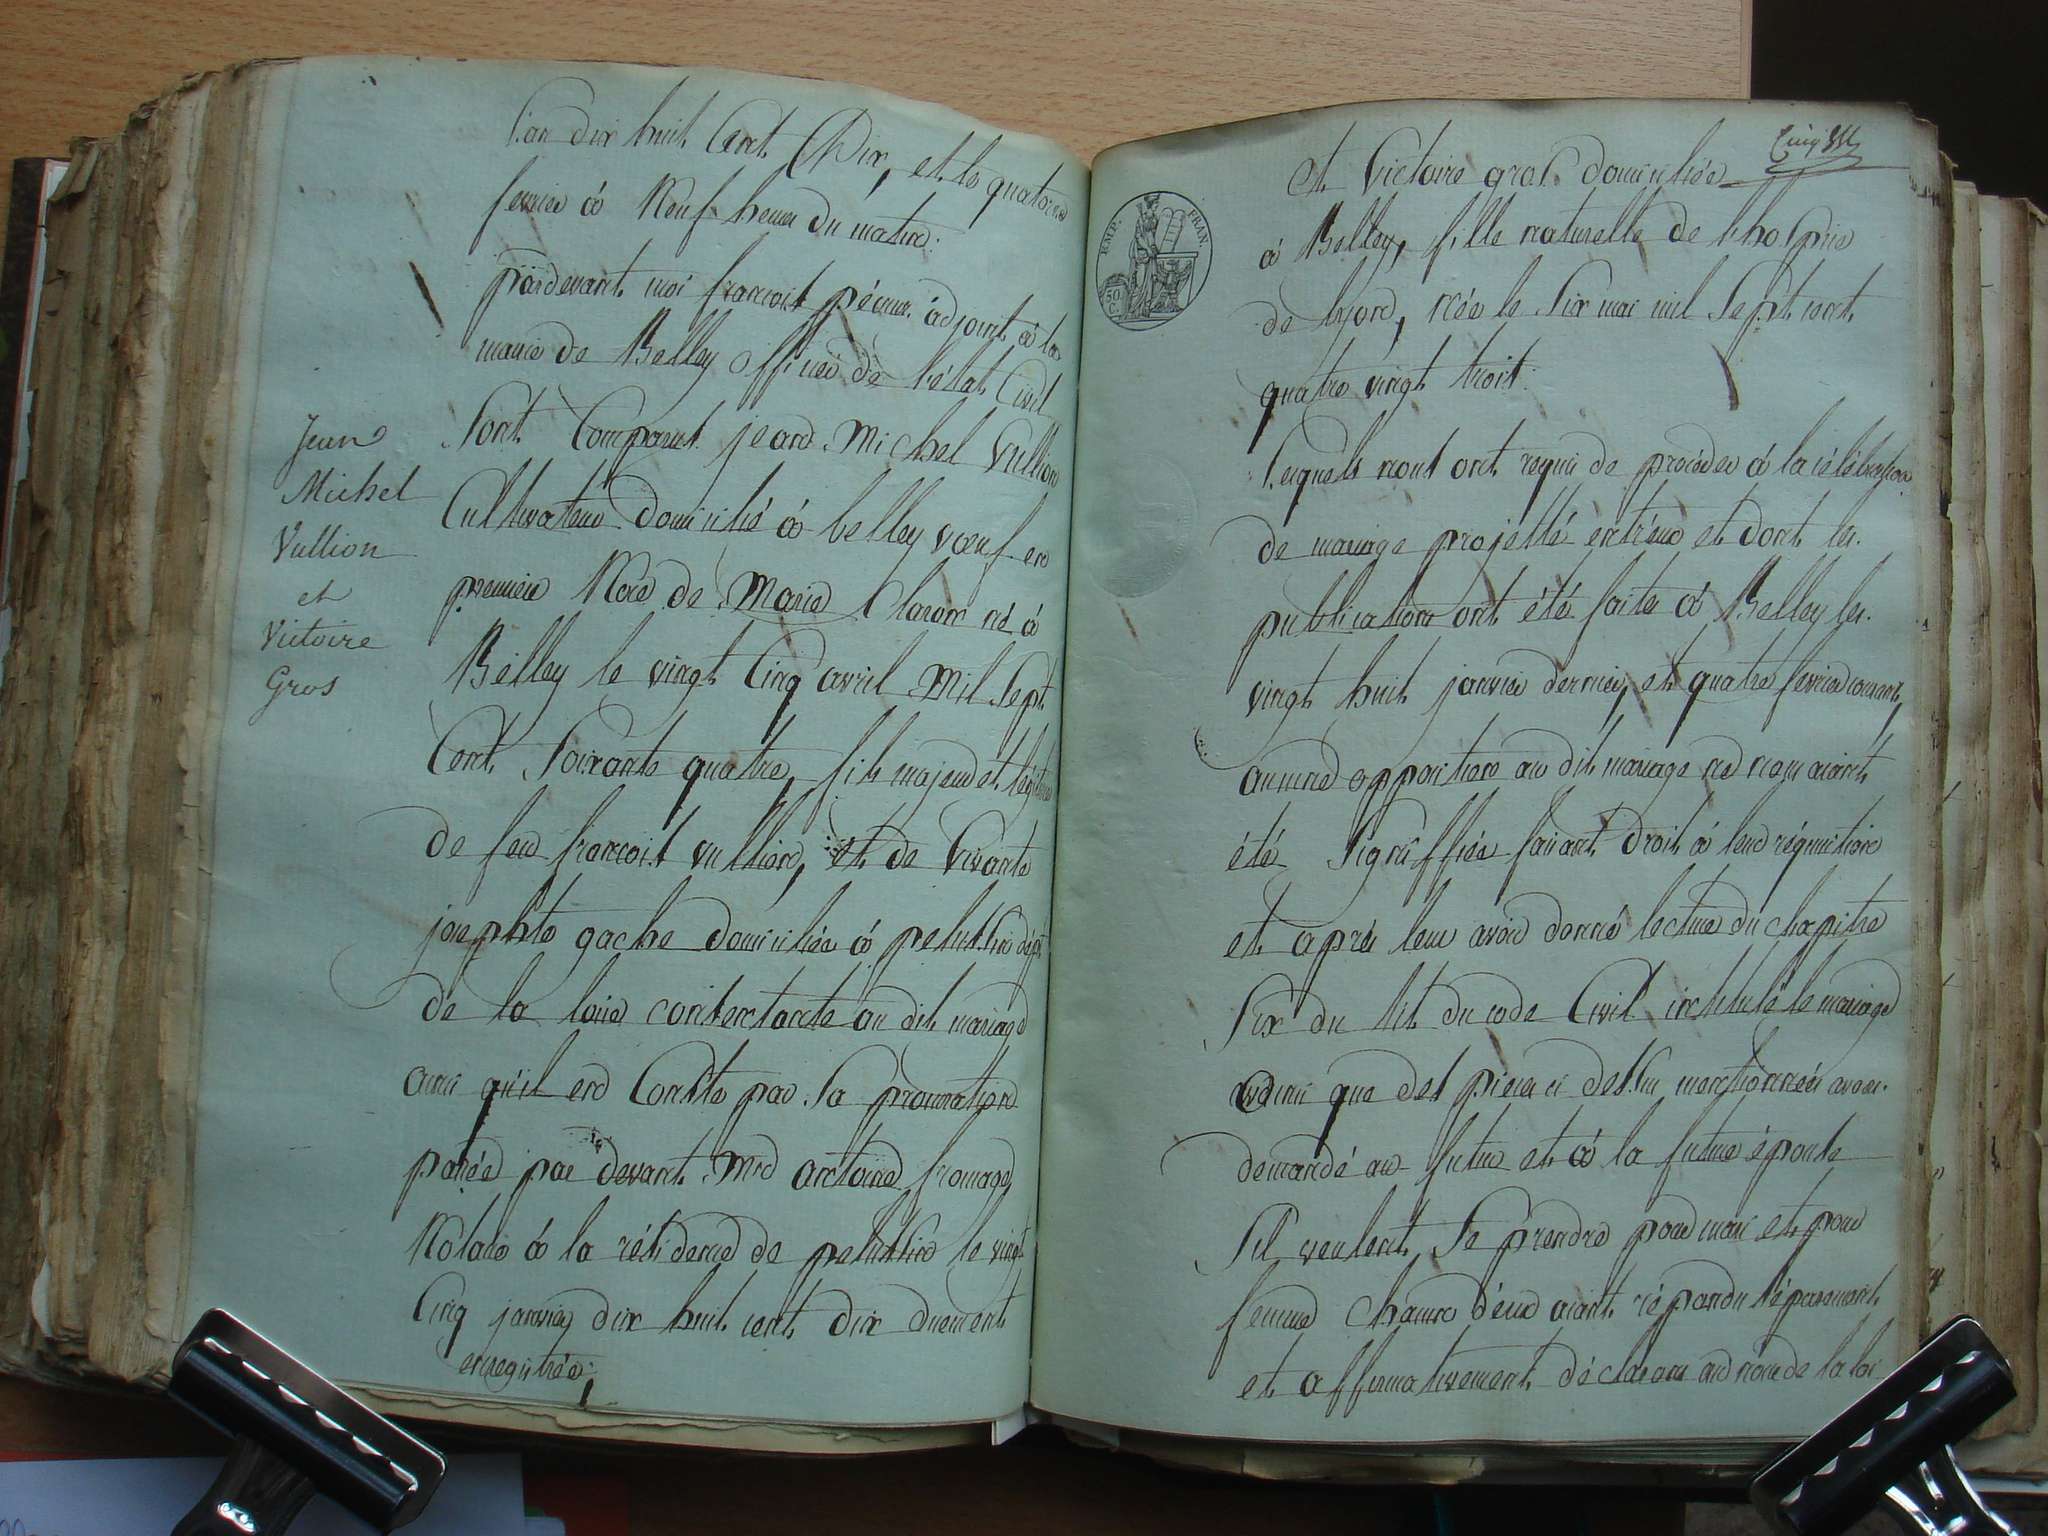 L'an dix huit Cent Dix, et le quatorze
fevrier à Neuf heures du matin.
pardevant moi françois adjoint à la
mairie de Belley officier de l'état Civil
Sont Comparus jean Michel Vullion
Cultivateur domicilié à belley veuf en
premiere Noce de Marie né à
Belley le vingt Cinq avril Mil Sept
Cent Soixante quatre, fils majeur et légitime
de feu françois vullion, et de Vivante
josephte gache domiciliée à pelussin dépt
de la loire contentante au dit mariage
ainsi qu'il en Conste par Sa procuration
passée par devant Me antoine fromage
Notaire à la résidence de pelussin le vingt
Cinq janvier dix huit cent dix duement
enregistrée;
Jean
Michel
Vullion
et
Victoire
Gros
et Victoire gros domiciliée
à Belley, fille naturelle de l'hospice
de née le Six mai mil Sept cent
quatre vingt trois.
EMP. FRAN.
50 C.
Lesquels nous ont requis de procéder à la célébration
de mariage projetté entr'eux et dont les
publications ont été faites à Belley les
vingt huit janvier dernier, et quatre fevrier courant,
aucune opposition au dit mariage ne nous aiant
été Signiffiée faisant droit à leur réquisition
et après leur avoir donné lecture du chapitre
Six du tit du code Civil intitulé le mariage
ainsi que des pieces ci dessus mentionnées avons
demandé au futur et à la future épouse
S'il veulent Se prendre pour mari et pour
femme chacun d'eux aiant répondu Séparement
et affirmativement déclarons au nom de la loi